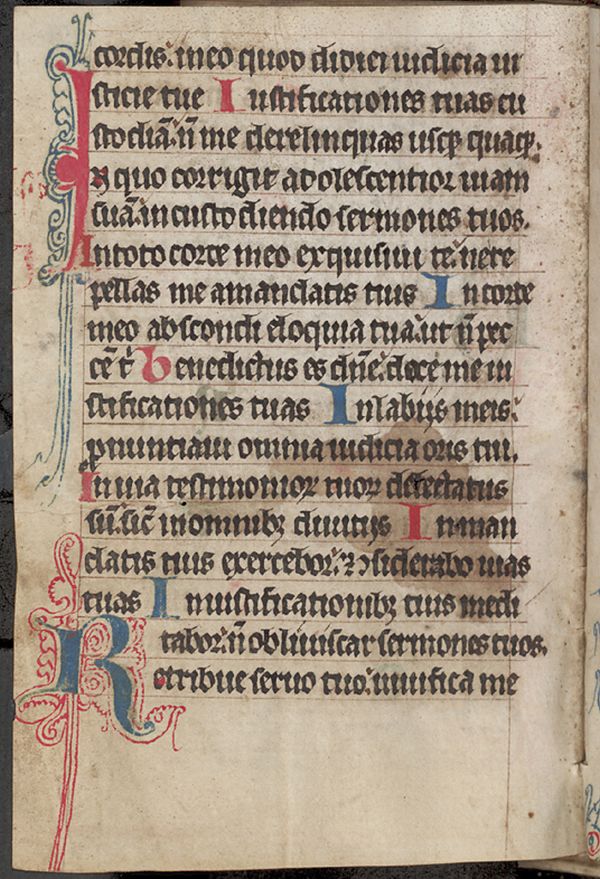 cordis. meo quod didici iudicia iu
sticie tue Iustificationes tuas cu
stodiā. n̄ me derelinquas usqꝫ quaqꝫ.
In quo corrigit adolescentior uiam
suā. in custodiendo sermones tuos.
In toto corde meo exquisiui te. ne re
pellas me a mandatis tuis In corde
meo abscondi eloquia tua. ut n̄ pec
cē t̄ Benedictus es dn̄e. doce me iu
stificationes tuas In labijs meis.
pnuntiaui omnia iudicia oris tui.
In uia testimonioꝝ tuoꝝ delectatus
sū. sic̄ in omnibꝫ diuitijs In man
datis tuis exercebor. ⁊ ꝯsiderabo uias
tuas In iustificationibꝫ tuis medi
tabor. n̄ obliuiscar sermones tuos.
Retribue seruo tuo. uiuifica me